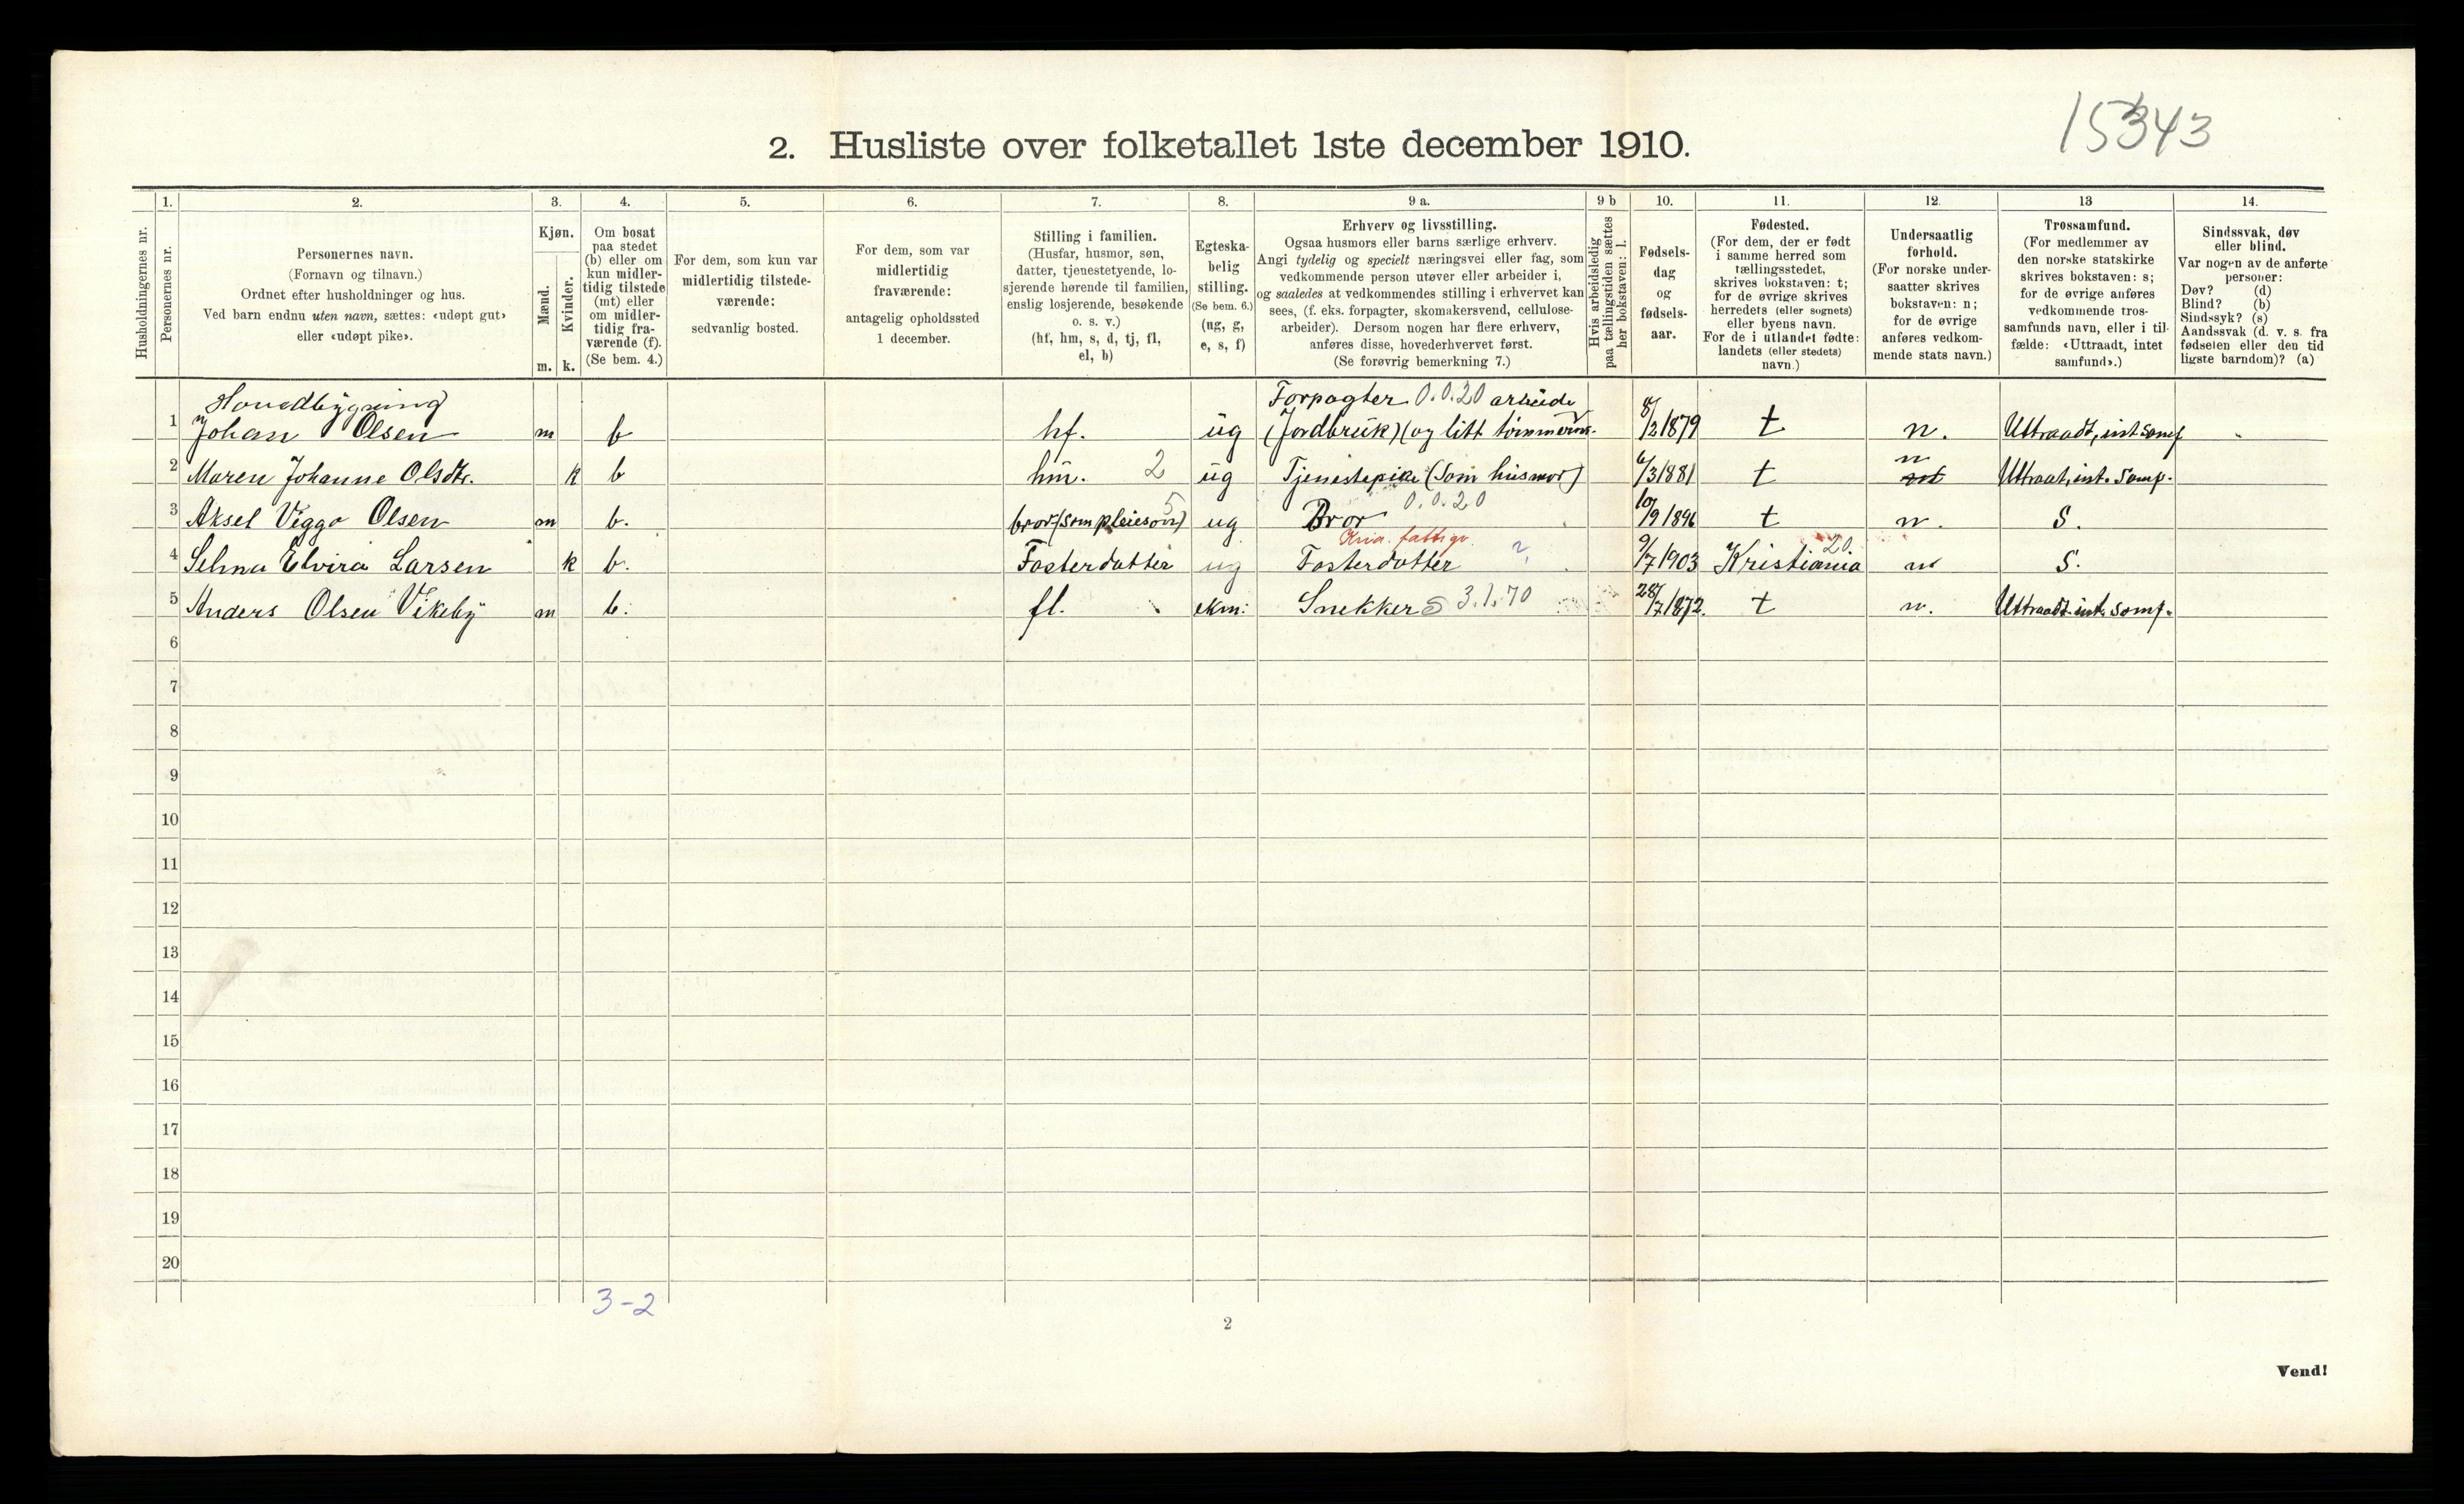 15343
2. Husliste over folketallet 1ste december 1910.
Husholdningernes nr.
1.
Personernes nr.
2.
Personernes navn.
(Fornavn og tilnavn.)
Ordnet efter husholdninger og hus.
Ved barn endnu uten navn, sættes: «udøpt gut»
eller «udøpt pike».
3.
Kjøn.
Mænd.
Kvinder.
m. k.
4.
Om bosat
paa stedet
(b) eller om
kun midler-
tidig tilstede
(mt) eller
om midler-
tidig fra-
værende (f).
(Se bem. 4.)
5.
For dem, som kun var
midlertidig tilstede-
værende:
sedvanlig bosted.
6.
For dem, som var
midlertidig
fraværende:
antagelig opholdssted
1 december.
7.
Stilling i familien.
(Husfar, husmor, søn,
datter, tjenestetyende, lo-
sjerende hørende til familien,
enslig losjerende, besøkende
o. s. v.)
(hf, hm, s, d, tj, fl,
el, b)
8.
Egteska-
belig
stilling.
(Se bem. 6.)
(ug, g,
e, s, f)
9 a.
Erhverv og livsstilling.
Ogsaa husmors eller barns særlige erhverv.
Angi tydelig og specielt næringsvei eller fag, som
vedkommende person utøver eller arbeider i,
og saaledes at vedkommendes stilling i erhvervet kan
sees, (f. eks. forpagter, skomakersvend, cellulose-
arbeider). Dersom nogen har flere erhverv,
anføres disse, hovederhvervet først.
(Se forøvrig bemerkning 7.)
9 b
Hvis arbeidsledig
paa tællingstiden sættes
her bokstaven: l.
10.
Fødsels-
dag
og
fødsels-
aar.
11.
Fødested.
(For dem, der er født
i samme herred som
tællingsstedet,
skrives bokstaven: t;
for de øvrige skrives
herredets (eller sognets)
eller byens navn.
For de i utlandet fødte:
landets (eller stedets)
navn.)
12.
Undersaatlig
forhold.
(For norske under-
saatter skrives
bokstaven: n;
for de øvrige
anføres vedkom-
mende stats navn.)
13
Trossamfund.
(For medlemmer av
den norske statskirke
skrives bokstaven: s;
for de øvrige anføres
vedkommende tros-
samfunds navn, eller i til-
fælde: «Uttraadt, intet
samfund».)
14.
Sindssvak, døv
eller blind.
Var nogen av de anførte
personer:
Døv? (d)
Blind? (b)
Sindssyk? (s)
Aandssvak (d. v. s. fra
fødselen eller den tid
ligste barndom)? (a)
Hovedbygning Forpagter 0.0.20 arbeide
1 Johan Olsen m b hf. ug (Jordbruk) (og litt tømmerm. 8/2 1879 t n. Uttraadt, int samf
2 Maren Johanne Olsdtr. k b hm. 2 ug Tjenestepike (som husmor) 6/3 1881 t n Uttraat, int. samf.
3 Aksel Viggo Olsen m b. bror (som pleiesøn) 5 ug Bror 0.0.20 10/9 1896 t n. S.
Kria. fattigv.
4 Selma Elvira Larsen k b. Fosterdatter ug Fosterdatter ? 9/7 1903 Kristiania 20. n S.
5 Anders Olsen Vikeby m b. fl. ekm: Snekker S 3.1.70 28/7 1872. t n. Uttraadt int. samf.
6
7
8
9
10
11
12
13
14
15
16
17
18
19
20
3-2
2
Vend!